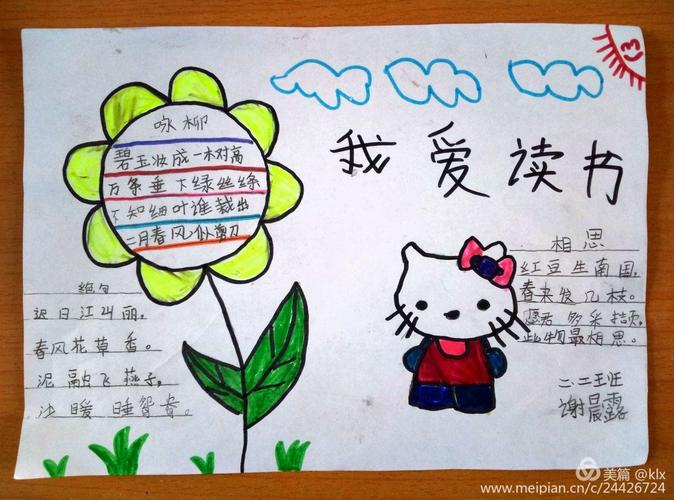 我爱读书
咏柳
碧玉妆成一树高
万条垂下绿丝绦
不知细叶谁裁出
二月春风似剪刀
绝句
迟日江山丽,
春风花草香。
泥融飞燕子,
沙暖睡鸳鸯。
相思
红豆生南国,
春来发几枝。
愿君多采撷,
此物最相思。
二.二班
谢晨露
美篇 @klx
www.meipian.cn/c/24426724